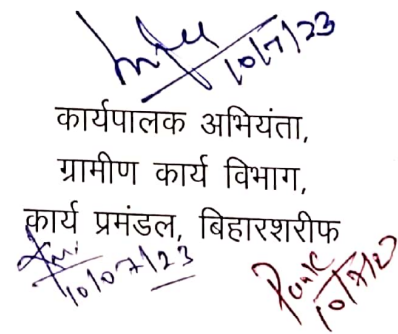 10/7/23
कार्यपालक अभियंता,
ग्रामीण कार्य विभाग,
कार्य प्रमंडल, बिहारशरीफ
10/07/23
10/7/23